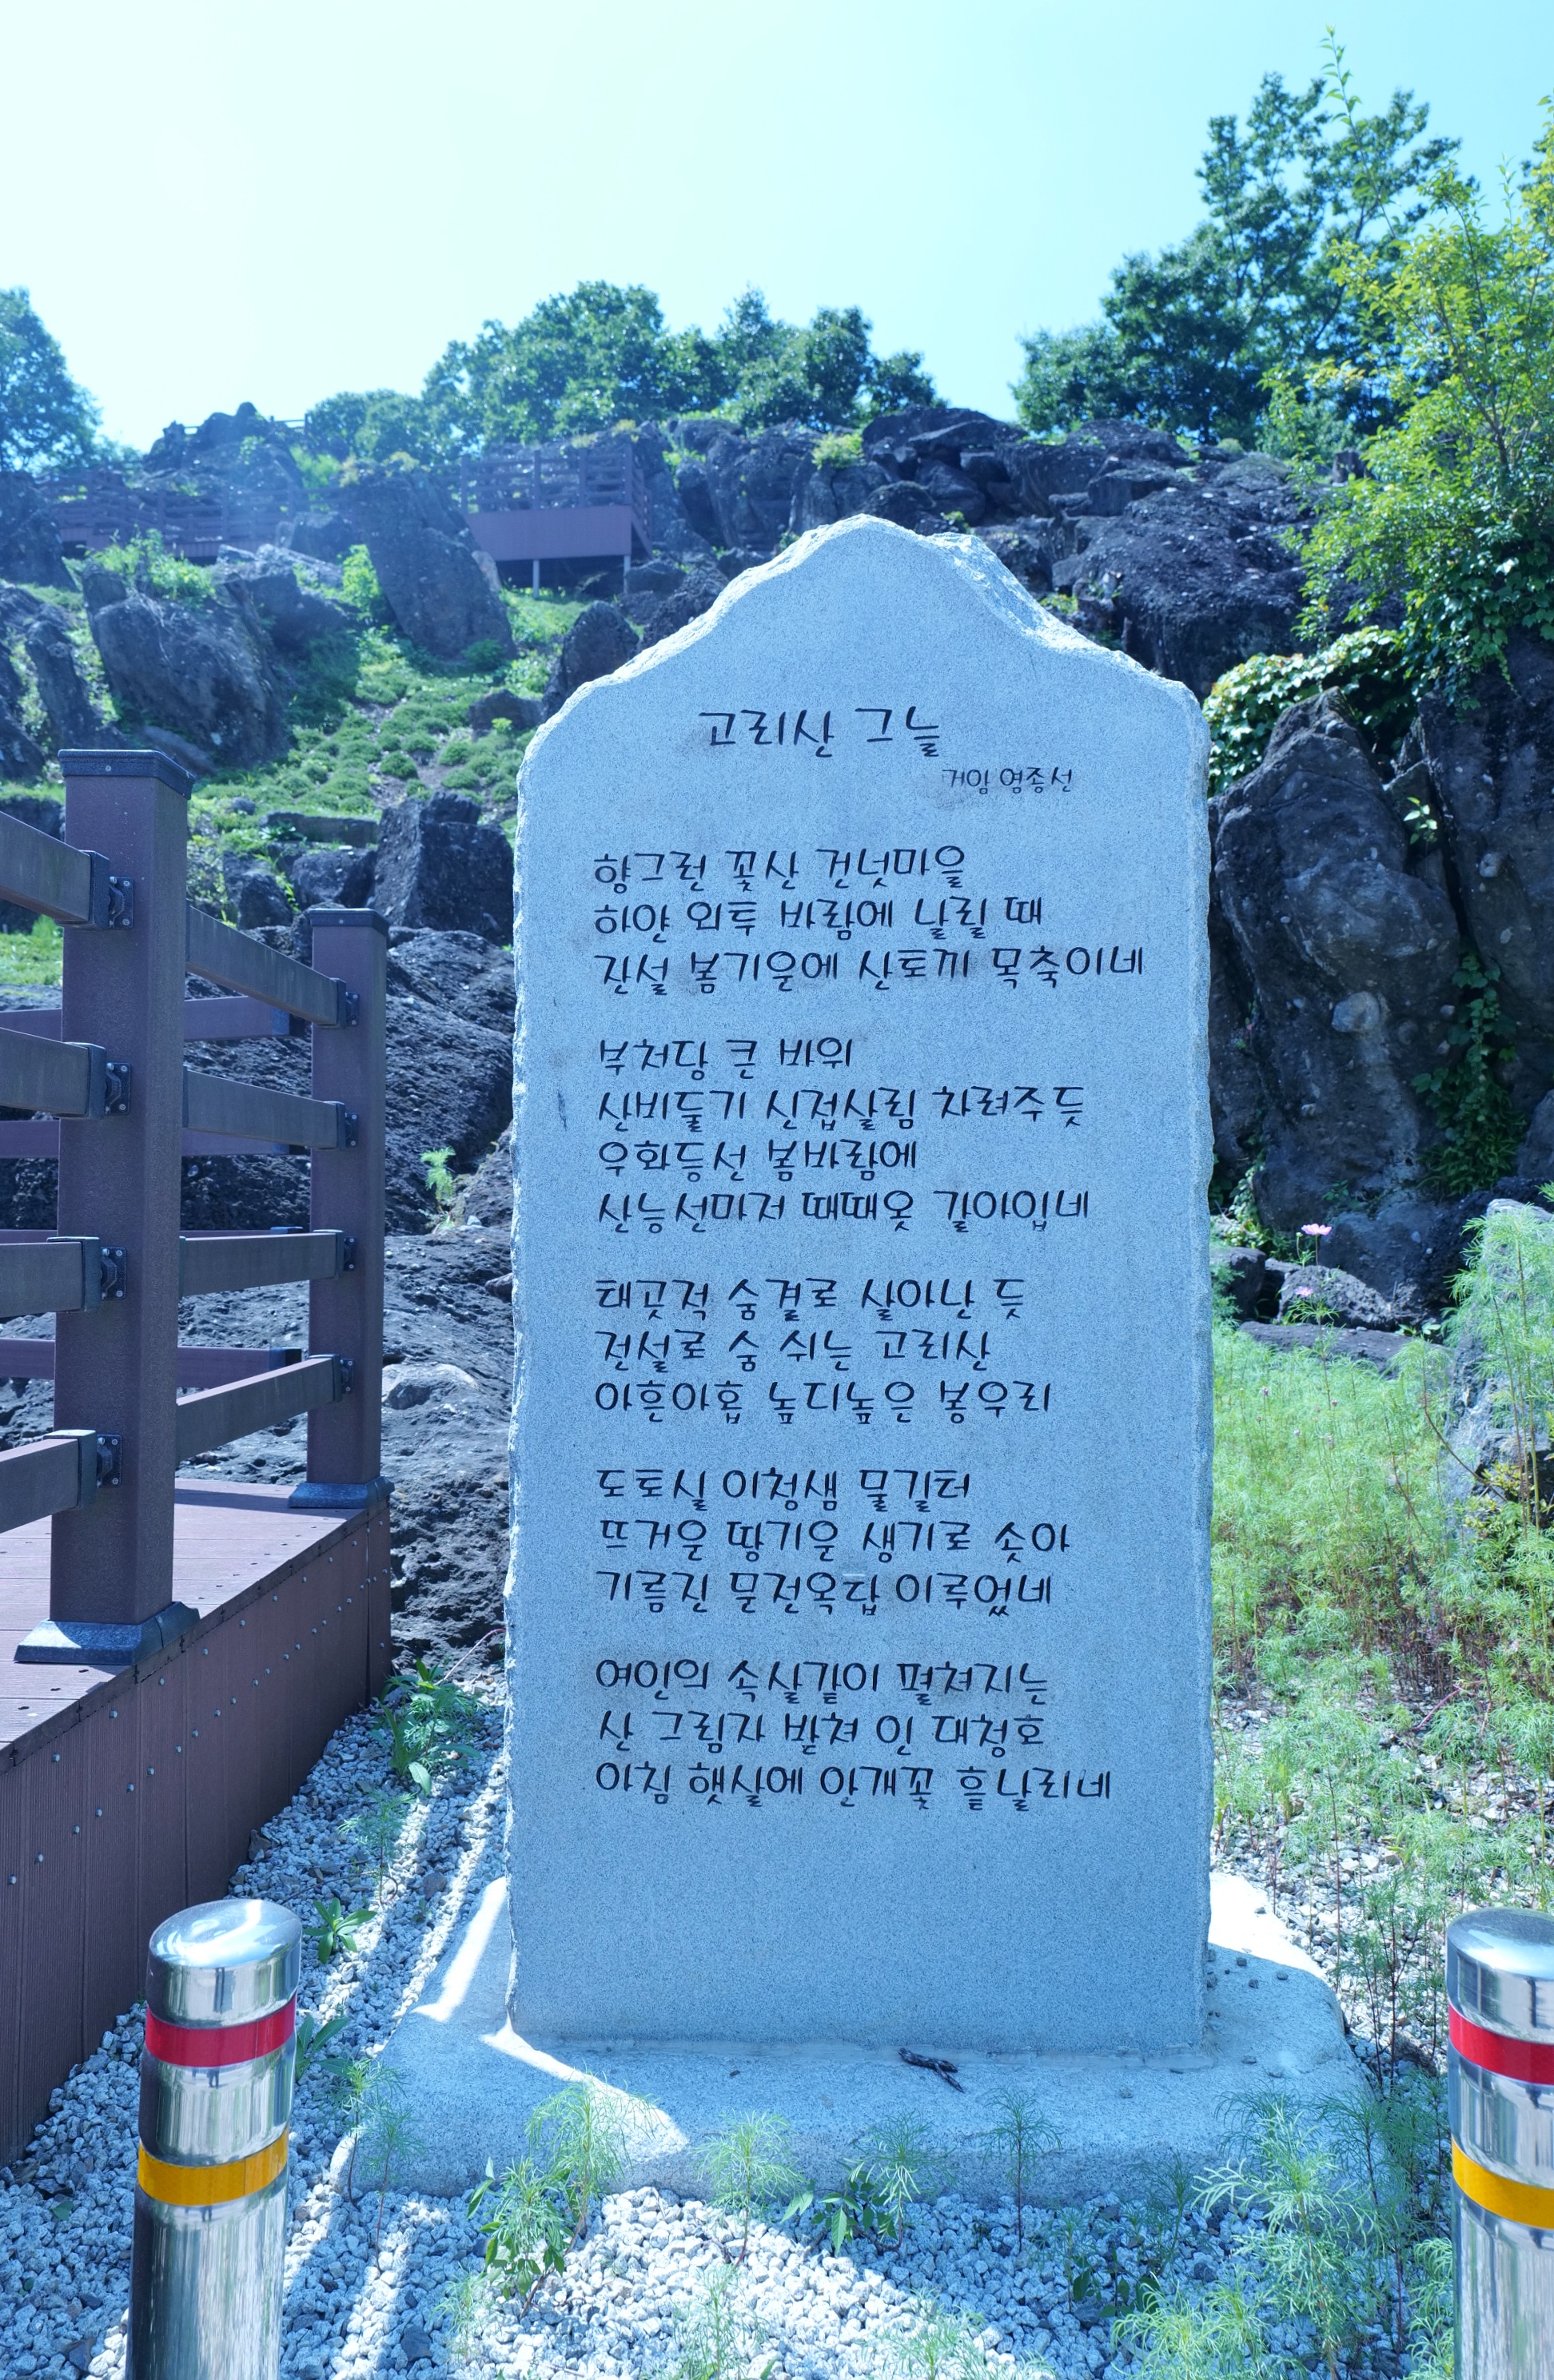 고리산 그늘
거암 염종선
향그런 꽃산 건넛마을
하얀 외투 바람에 날릴 때
잔설 봄기운에 산토끼 목축이네
부처당 큰 바위
산비둘기 신접살림 차려주듯
우화등선 봄바람에
산능선마저 때때옷 갈아입네
태곳적 숨결로 살아난 듯
전설로 숨 쉬는 고리산
아흔아홉 높디높은 봉우리
도토실 이청샘 물길터
뜨거운 땅기운 생기로 솟아
기름진 문전옥답 이루었네
여인의 속살같이 펼쳐지는
산 그림자 받쳐 인 대청호
아침 햇살에 안개꽃 흩날리네